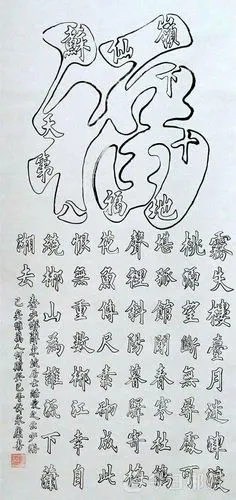 蘇仙嶺
天下第十八福地
霧失樓臺月迷津渡
桃源望斷無尋處可
堪孤館閉春寒杜鵑
聲裡斜陽暮驛寄梅
花魚傳尺素砌成此
恨無重數郴江幸自
繞郴山為誰流下瀟
湘去
東坡居士酷愛之云少游
已矣雖萬人何贖